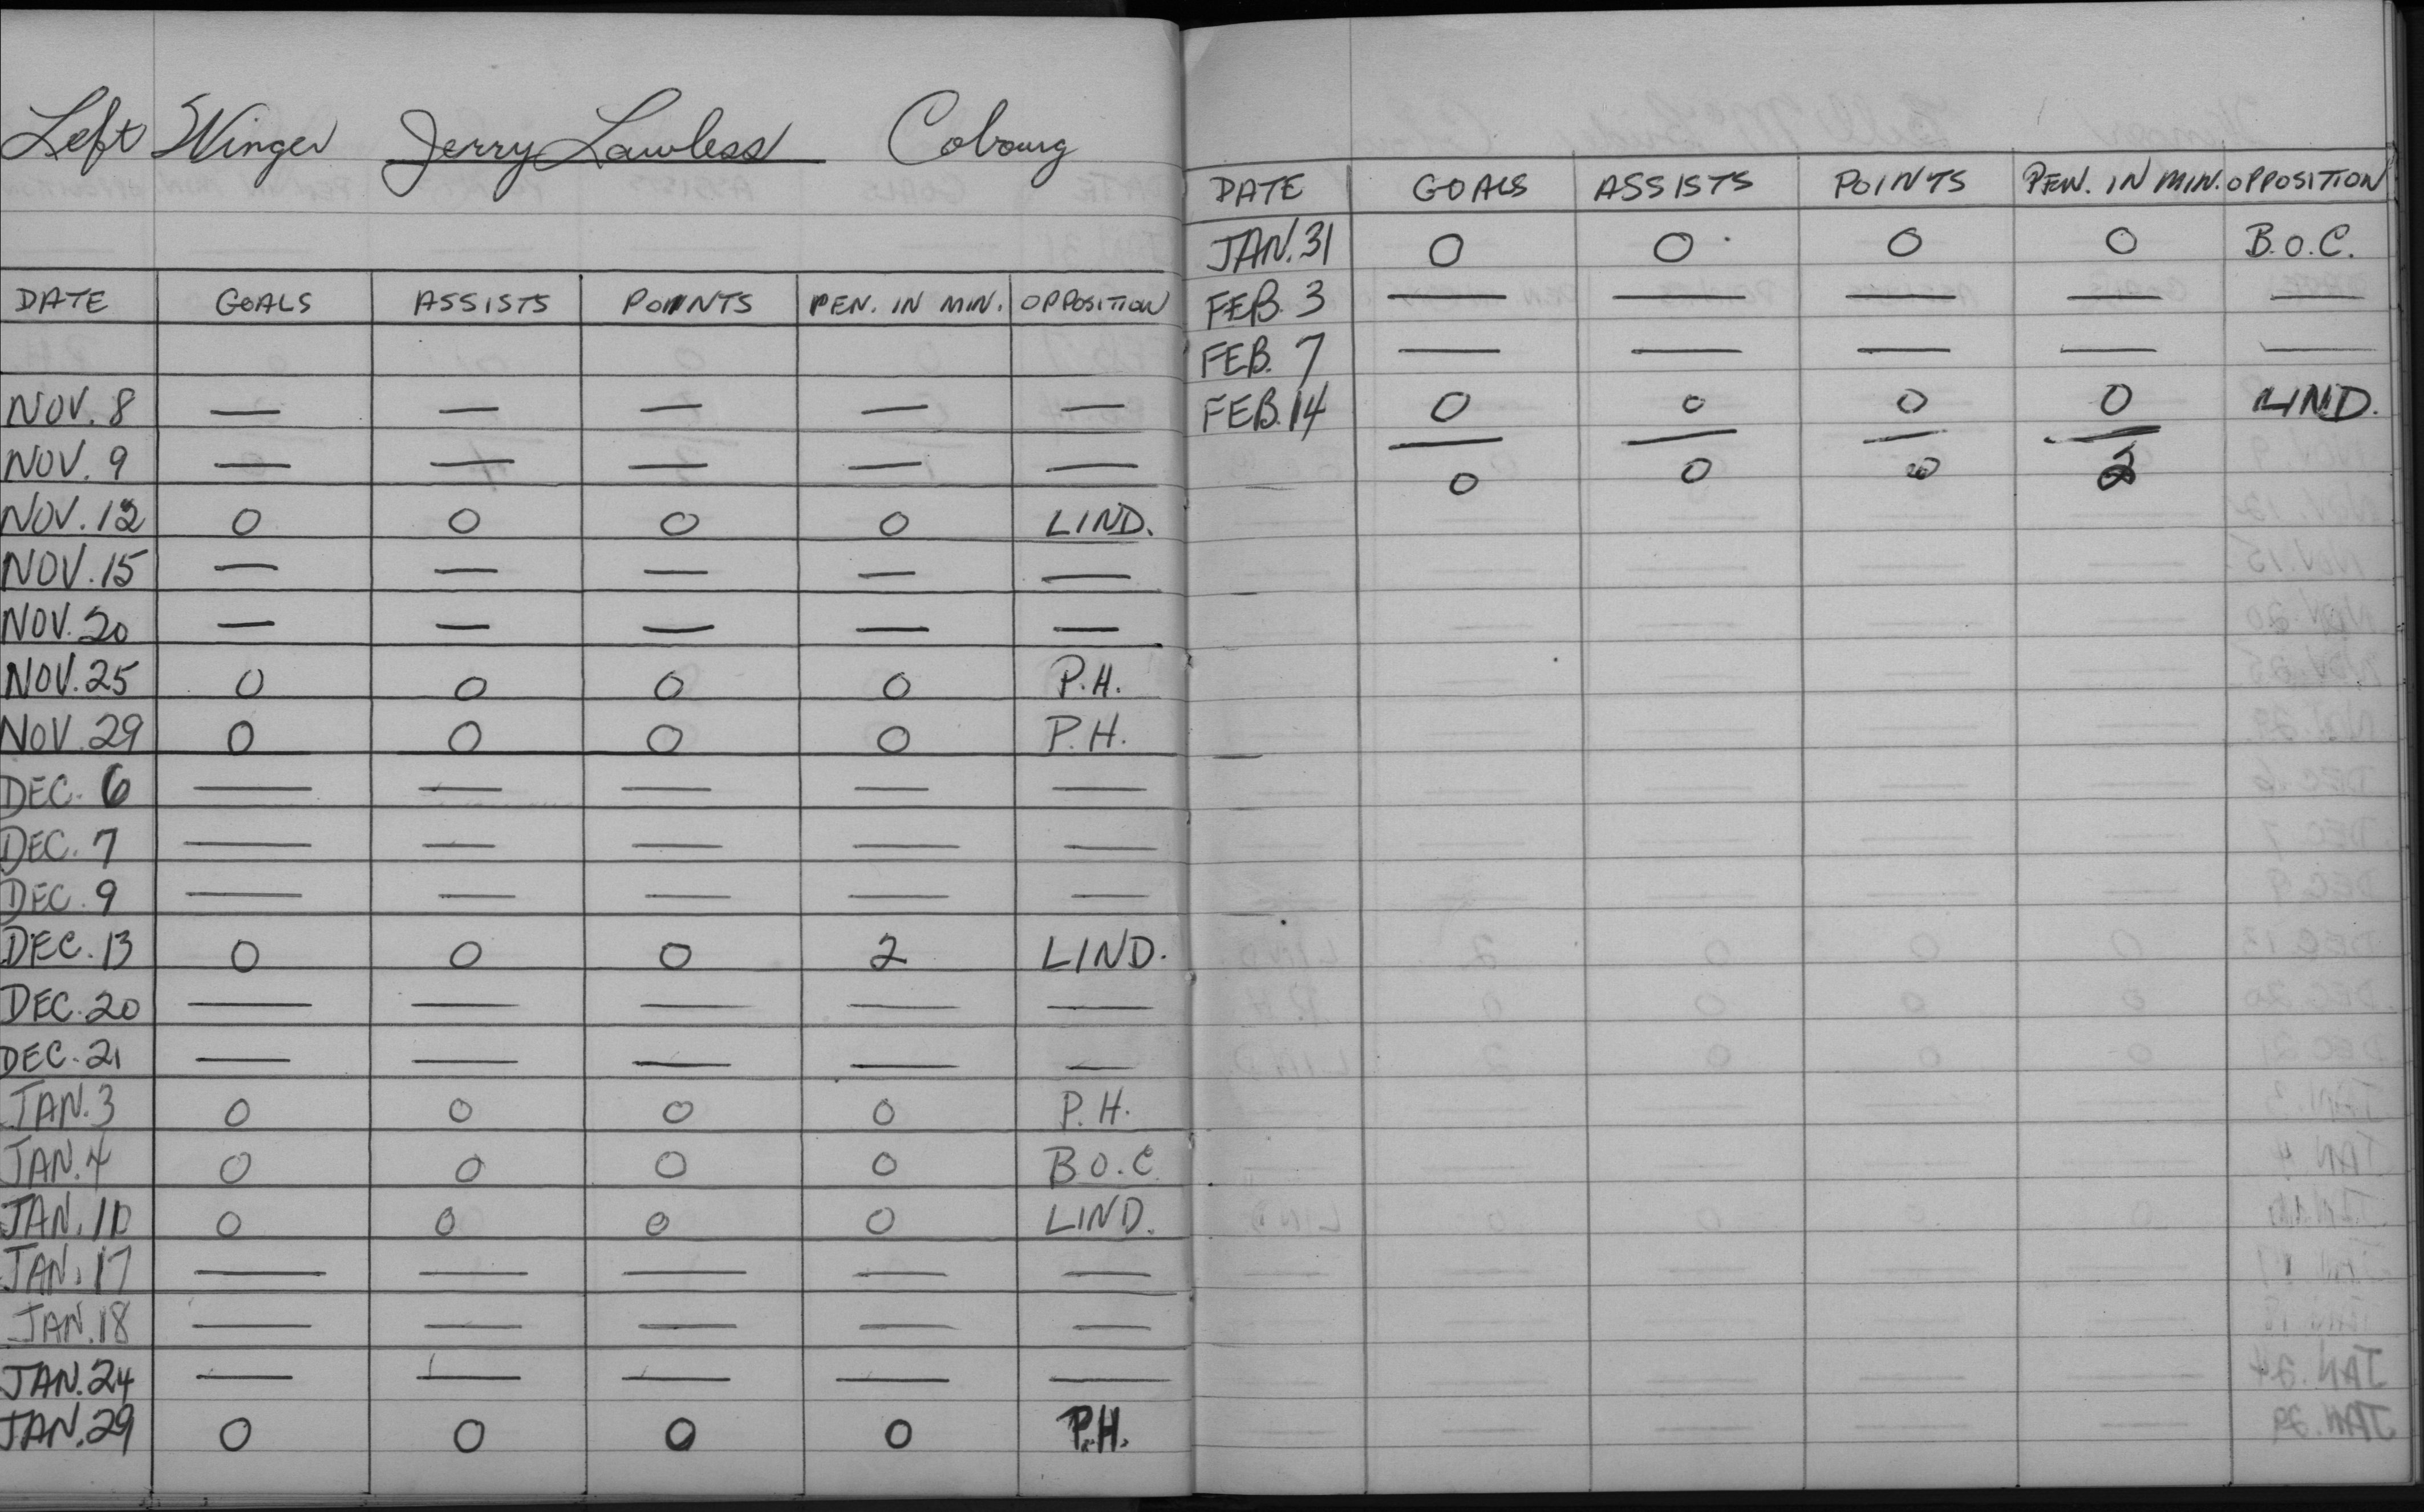 Left Winger Jerry Lawless Cobourg
DATE GOALS ASSISTS POINTS PEN. IN MIN. OPPOSITION
NOV. 8 — — — — —
NOV. 9 — — — — —
NOV. 12 0 0 0 0 LIND.
NOV. 15 — — — — —
NOV. 20 — — — — —
NOV. 25 0 0 0 0 P.H.
NOV. 29 0 0 0 0 P.H.
DEC. 6 — — — — —
DEC. 7 — — — — —
DEC. 9 — — — — —
DEC. 13 0 0 0 2 LIND.
DEC. 20 — — — — —
DEC. 21 — — — — —
JAN. 3 0 0 0 0 P.H.
JAN. 4 0 0 0 0 B.O.C.
JAN. 10 0 0 0 0 LIND.
JAN. 17 — — — — —
JAN. 18 — — — — —
JAN. 24 — — — — —
JAN. 29 0 0 0 0 P.H.
DATE GOALS ASSISTS POINTS PEN. IN MIN. OPPOSITION
JAN. 31 0 0 0 0 B.O.C.
FEB. 3 — — — — —
FEB. 7 — — — — —
FEB. 14 0 0 0 0 LIND.
0 0 0 2